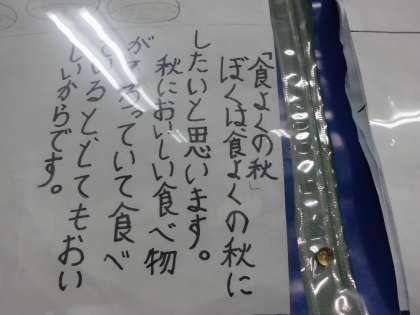 「食よくの秋」
ぼくは、食よくの秋に
したいと思います。
秋においしい食べ物
がそろっていて食べ
ているととてもおい
しいからです。